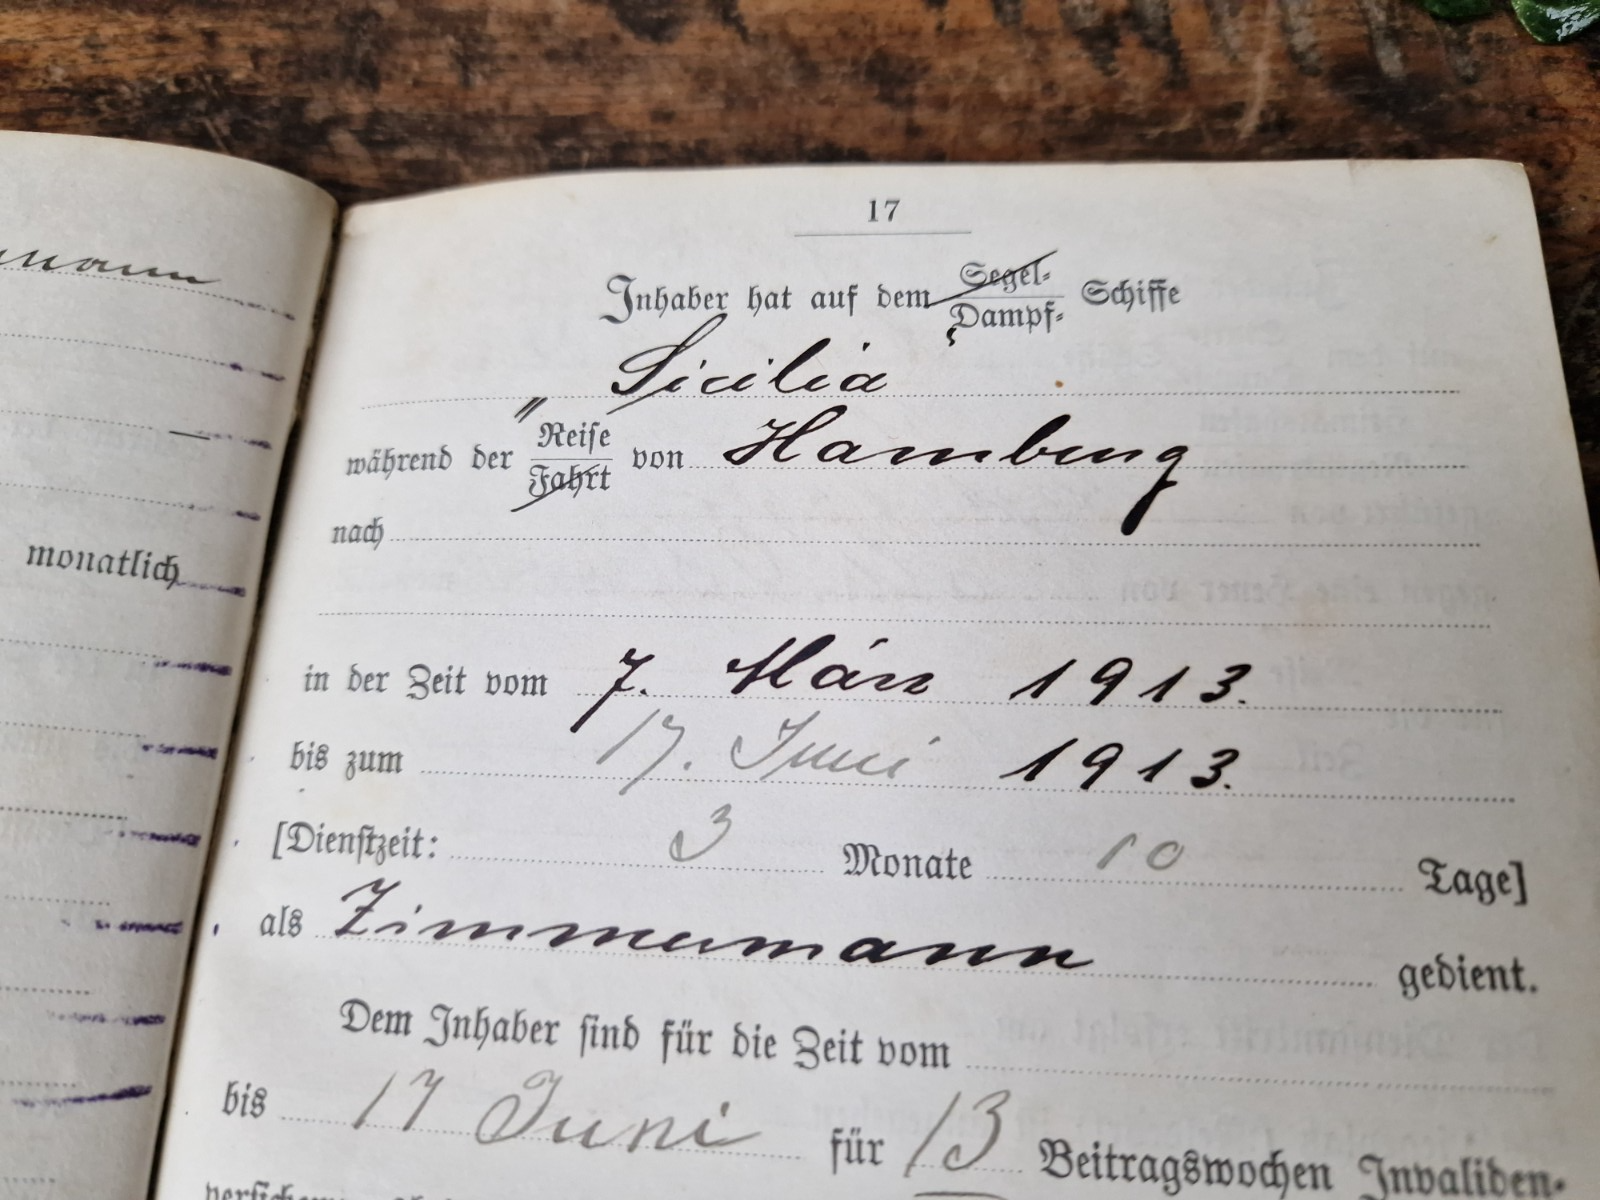 17
Inhaber hat auf dem Segel-
Dampf- Schiffe
Sicilia
während der Reise
Fahrt von Hamburg
nach
in der Zeit vom 7. März 1913.
bis zum 17. Juni 1913.
[Dienstzeit: 3 Monate 10 Tage]
als Zimmermann gedient.
Dem Inhaber sind für die Zeit vom
bis 17 Juni für 13 Beitragswochen Invaliden-
monatlich